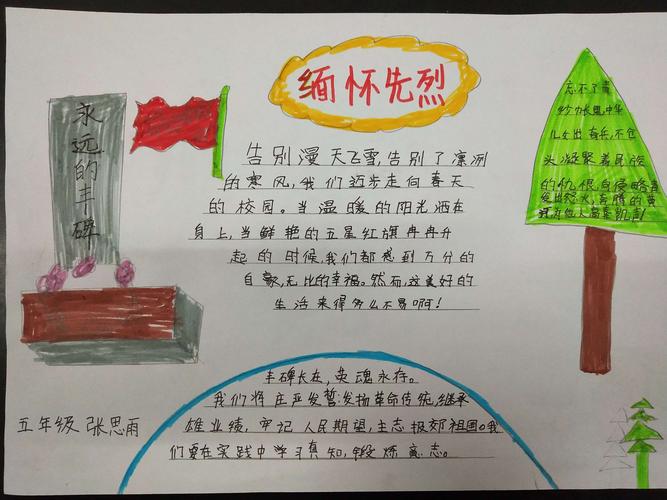 缅怀先烈
永远的丰碑
告别漫天飞雪,告别了凛冽
的寒风,我们迈步走向春天
的校园。当温暖的阳光洒在
身上,当鲜艳的五星红旗冉冉升
起的时候,我们都感到万分的
自豪,无比的幸福。然而,这美好的
生活来得多么不易啊!
忘不了黄
沙场里,中华
儿女出奇兵,不仓
头凝聚着民族
的仇恨,向侵略者
丰碑长在,英魂永存。
我们将庄严发誓:发扬革命传统,继承
雄业绩,牢记人民期望,主志报效祖国。我
们要在实践中学习真知,锻炼意志。
五年级 张思雨